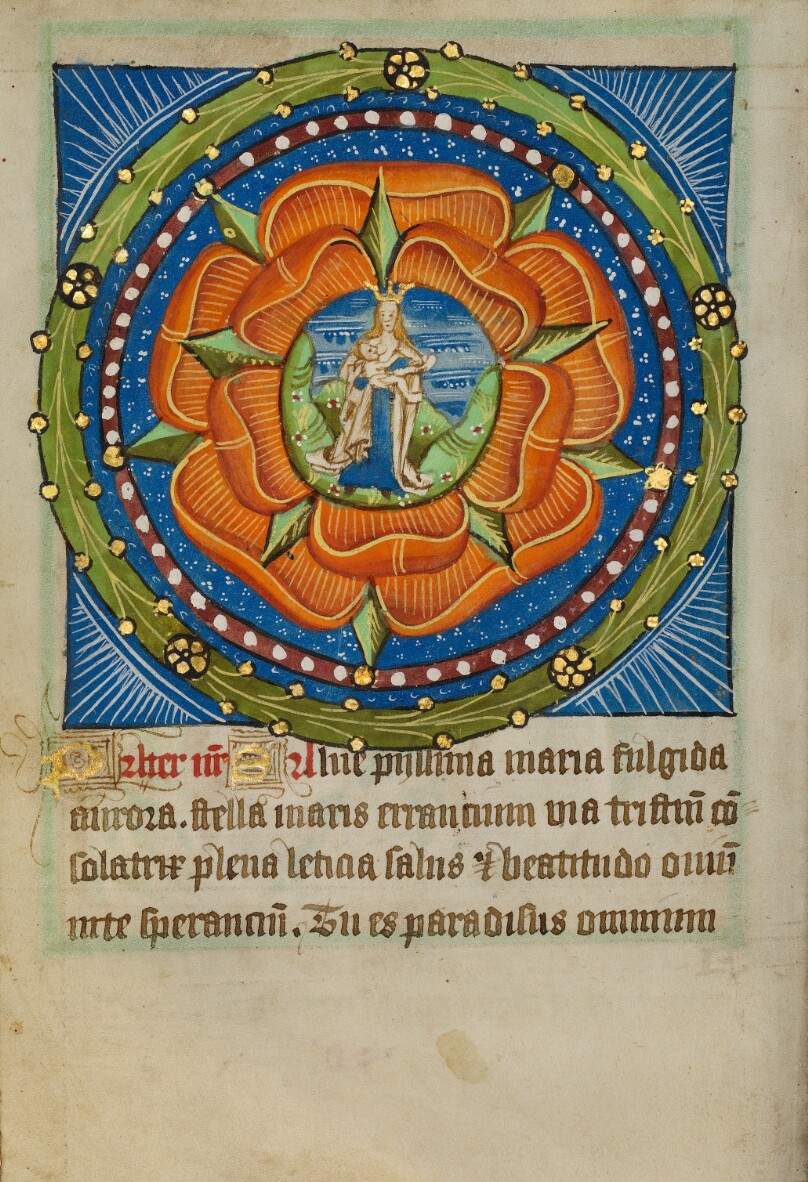 Pater nr̄ Salue piissima maria fulgida
aurora. stella maris errancium via tristiū cō
solatrix plena leticia salus ⁊ beatitudo oniū
in te speranciū. Tu es paradisus omnium